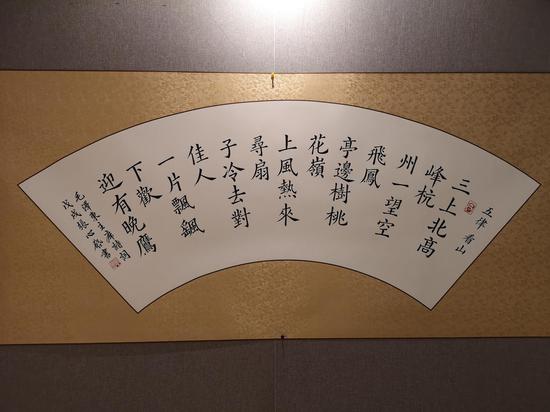 五律 看山
三上北髙
峰杭
州一望空
飛鳳
亭邊樹桃
花嶺
上風熱來
尋扇
子冷去對
佳人
一片飄颻
下歡
迎有晚鷹
毛澤東主席詩詞
戊戌張心書